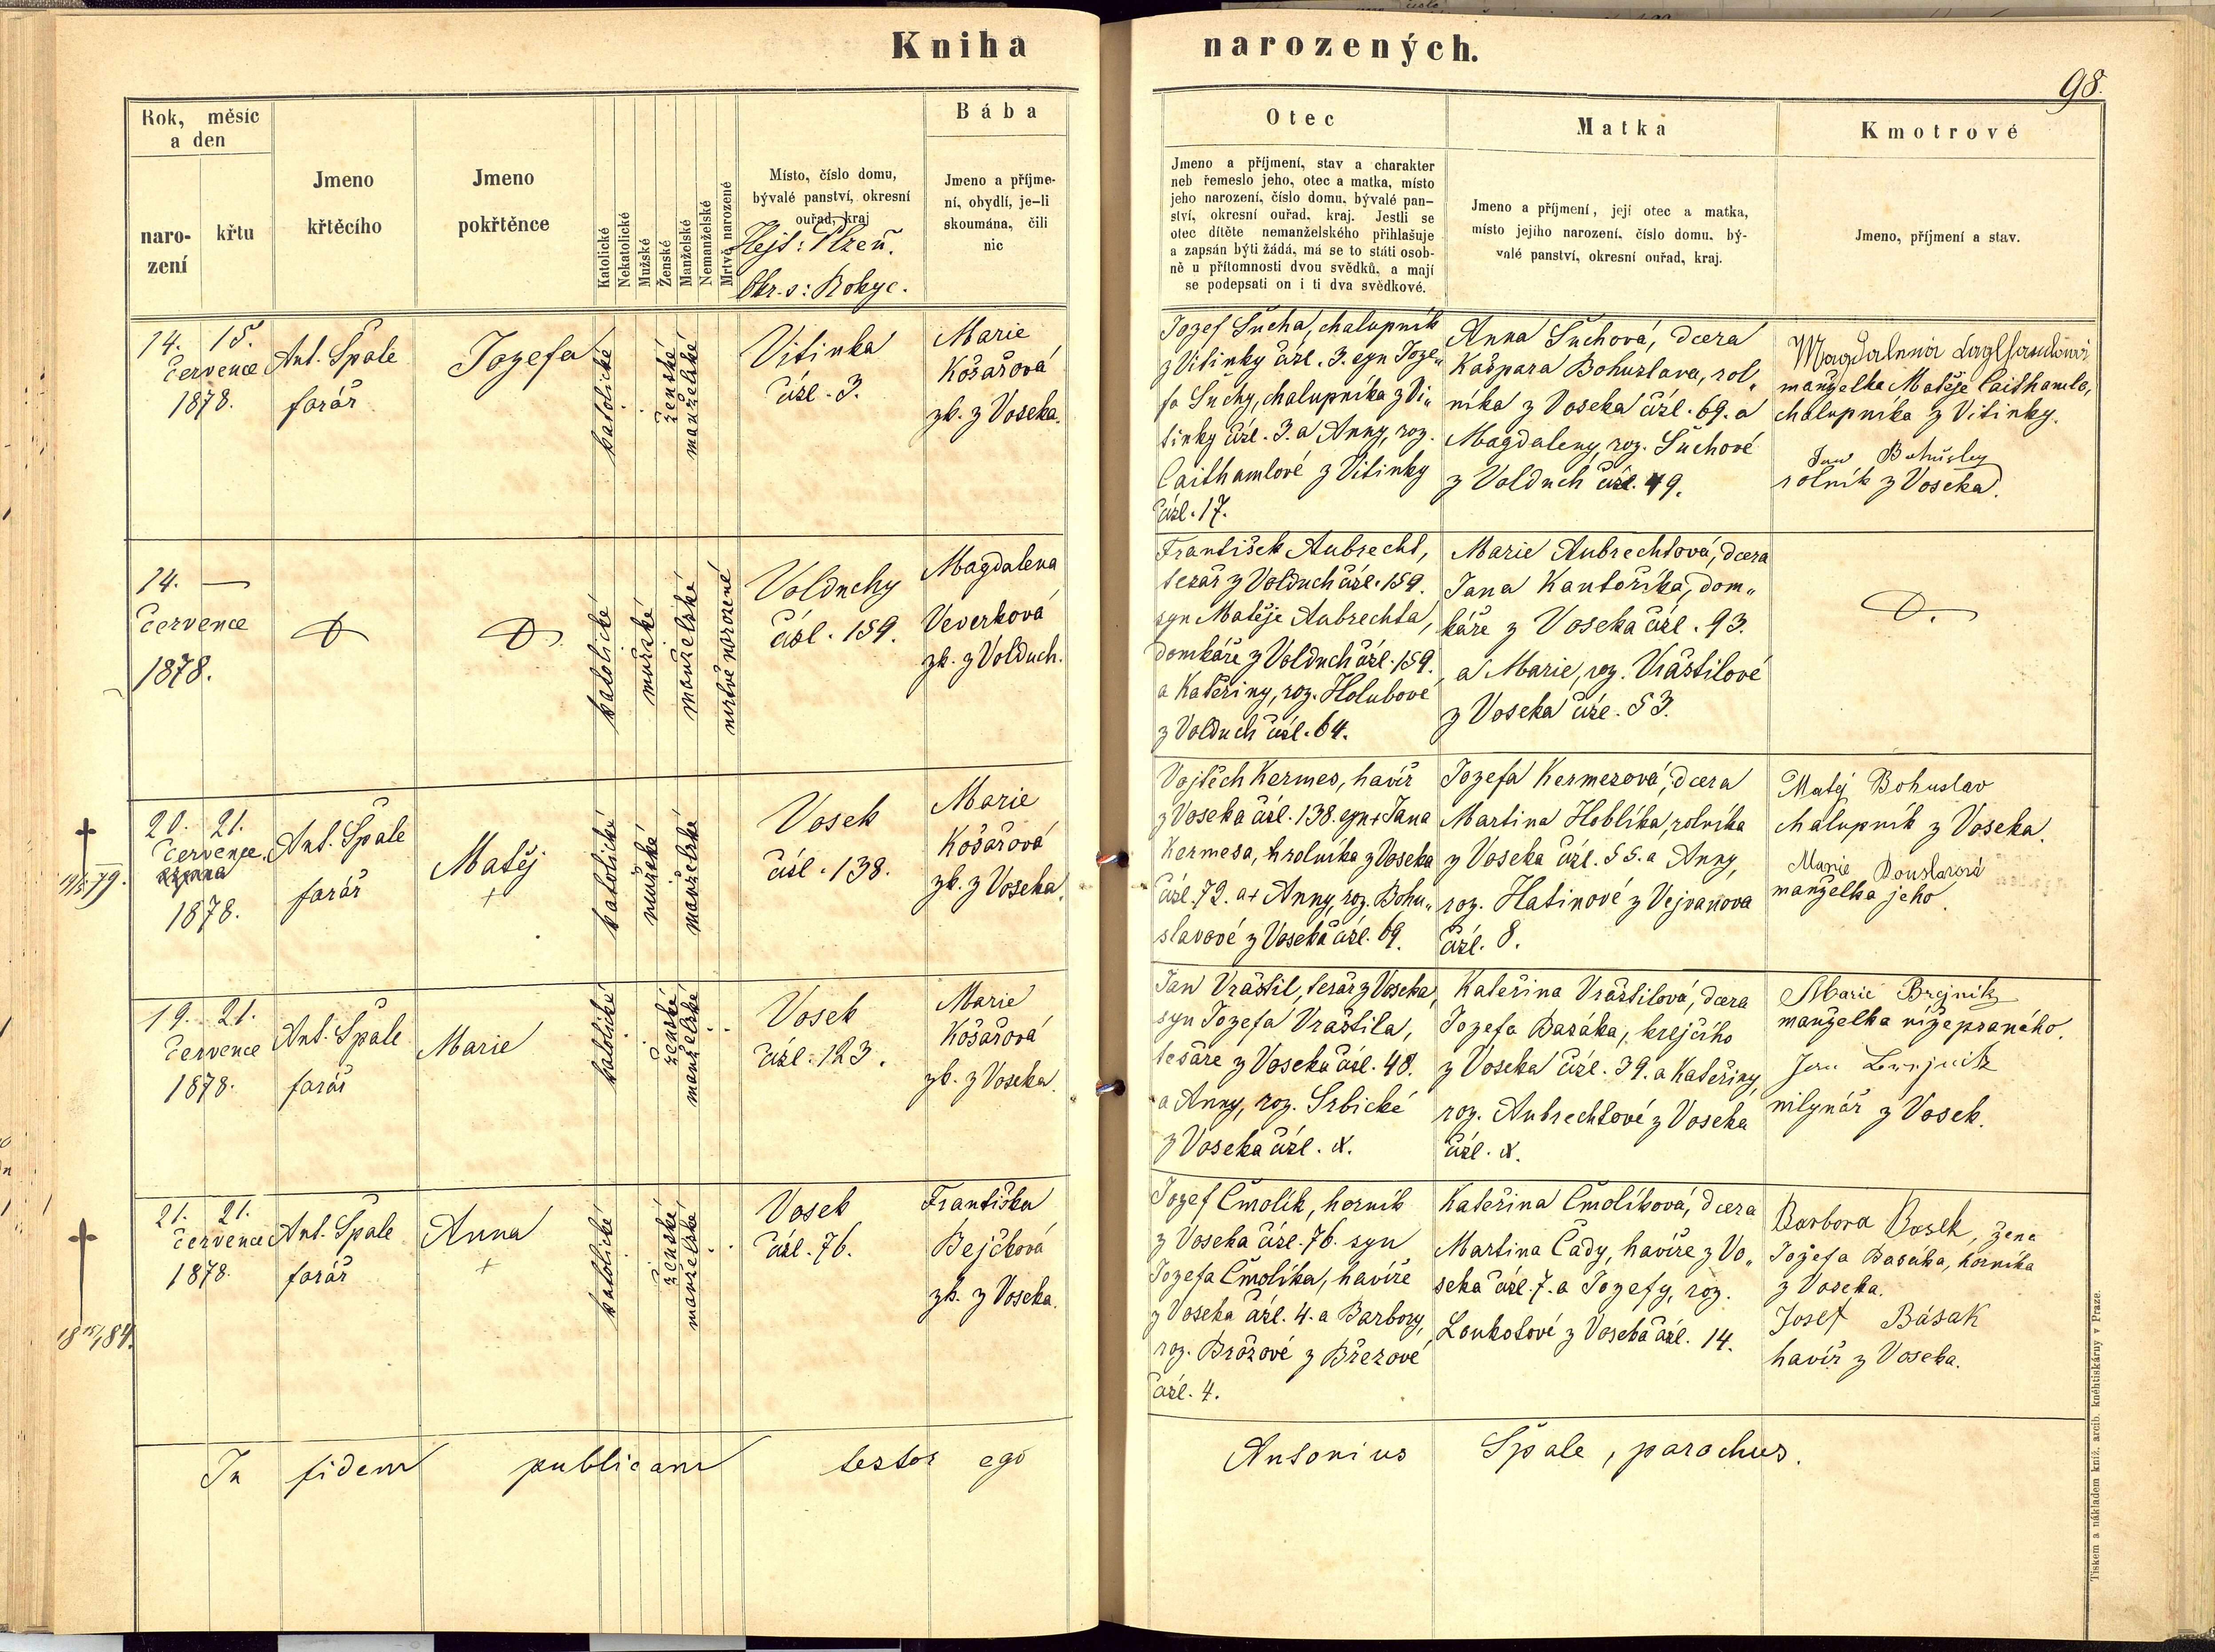 Kniha narozených.
98.
Rok, měsíc
a den
naro-
zení
křtu
Jmeno
křtěcího
Jmeno
pokřtěnce
Katolické
Nekatolické
Mužské
Ženské
Manželské
Nemanželské
Mrtvě narozené
Místo, číslo domu,
bývalé panství, okresní
ouřad, kraj
Hejt: Plzeň.
Okr. s: Rokyc.
Bába
Jmeno a příjme-
ní, obydlí, je-li
skoumána, čili
nic
Otec
Jmeno a příjmení, stav a charakter
neb řemeslo jeho, otec a matka, místo
jeho narození, číslo domu, bývalé pan-
ství, okresní ouřad, kraj. Jestli se
otec dítěte nemanželského přihlašuje
a zapsán býti žádá, má se to státi osob-
ně u přítomnosti dvou svědků, a mají
se podepsati on i ti dva svědkové.
Matka
Jmeno a příjmení, její otec a matka,
místo jejího narození, číslo domu, bý-
valé panství, okresní ouřad, kraj.
Kmotrové
Jmeno, příjmení a stav.
14. 15.
července
1878.
Ant. Špale
farář
Jozefa
katolické
ženské
manželské
Vitinka
čísl. 3.
Marie
Košařová
zk. z Voseka.
Jozef Sucha, chalupník
z Vitinky čísl. 3. syn Joze„
fa Suchy, chalupníka z Vi„
tinky čísl. 3. a Anny, roz.
Caithamlové z Vitinky
čísl. 17.
Anna Suchová, dcera
Kašpara Bohuslava, rol„
níka z Voseka čísl. 69. a
Magdaleny, roz. Suchové
z Volduch čísl. 49.
manželka Matěje Caithamla,
chalupníka z Vitinky.
Jan
rolník z Voseka.
14. —
července
1878.
katolické
mužské
manželské
mrtvě narozené
Volduchy
čísl. 159.
Magdalena
Veverková
zk. z Volduch.
František Aubrecht,
tesař z Volduch čísl. 159.
syn Matěje Aubrechta,
domkáře z Volduch čísl. 159.
a Kateřiny, roz. Holubové
z Volduch čísl. 64.
Marie Aubrechtová, dcera
Jana Kantoříka, dom„
káře z Voseka čísl. 93.
a Marie, roz. Vrástilové
z Voseka čísl. 53.
20. 21.
července
1878.
Ant. Špale
farář
Matěj
+
katolické
mužské
manželské
Vosek
čísl. 138.
Marie
Košařová
zk. z Voseka.
Vojtěch Kermes, havíř
z Voseka čísl. 138. syn + Jana
Kermesa, rolníka z Voseka
čísl. 72. a + Anny, roz. Bohu„
slavové z Voseka čísl. 69.
Jozefa Kermesová, dcera
Martina Hoblíka, rolníka
z Voseka čísl. 55. a Anny,
roz. Hatinové z Vejvanova
čísl. 8.
Matěj Bohuslav
chalupník z Voseka.
Marie
manželka jeho
19. 21.
července
1878.
Ant. Špale
farář
Marie
katolické
ženské
manželské
Vosek
čísl. 123.
Marie
Košařová
zk. z Voseka.
Jan Vrástil, tesař z Voseka,
syn Jozefa Vrástila,
tesaře z Voseka čísl. 48.
a Anny, roz. Srbické
z Voseka čísl. x.
Kateřina Vrástilová, dcera
Jozefa Basáka, krejčího
z Voseka čísl. 39. a Kateřiny,
roz. Aubrechtové z Voseka
čísl. x.
Marie
manželka nížepsaného.
mlynář z Vosek.
21. 21.
července
1878.
Ant. Špale
farář
Anna
+
katolické
ženské
manželské
Vosek
čísl. 76.
Františka
Bejčková
zk. z Voseka.
Jozef Čmolík, horník
z Voseka čísl. 76. syn
Jozefa Čmolíka, havíře
z Voseka čísl. 4. a Barbory,
roz. Brožové z Březové
čísl. 4.
Kateřina Čmolíková, dcera
Martina Cady, havíře z Vo„
seka čísl. 7. a Jozefy, roz.
Loukotové z Voseka čísl. 14.
Barbora Basek, žena
Jozefa Basáka, horníka
z Voseka.
Josef Básak
havíř z Voseka.
In fidem publicam testor ego Antonius Špale, parochus.
Tiskem a nákladem kníž. arcib. knihtiskárny v Praze.